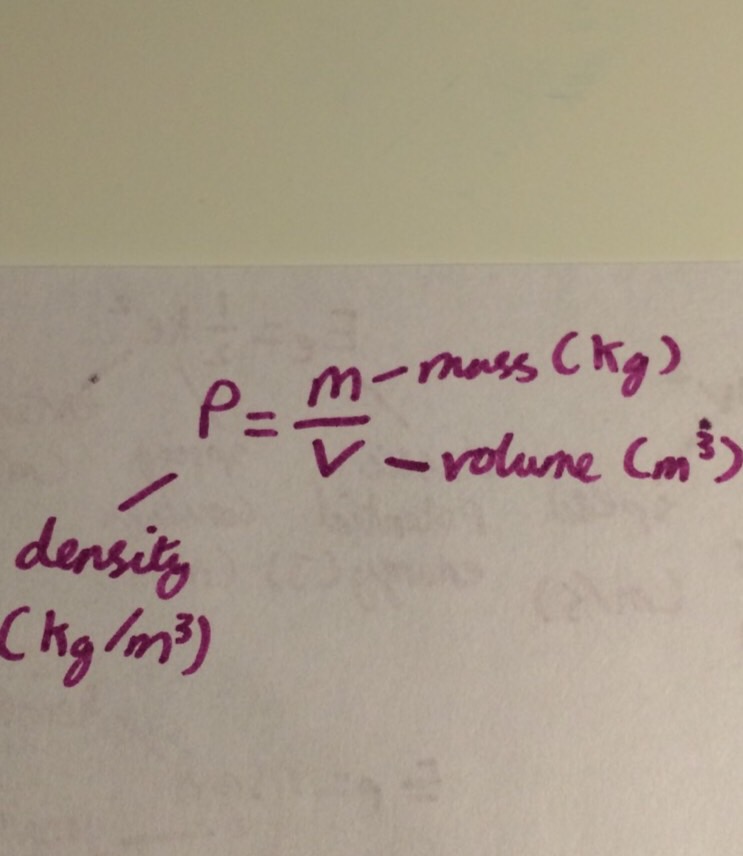 ρ = m/V
m – mass (kg)
V – volume (m³)
density
(kg/m³)